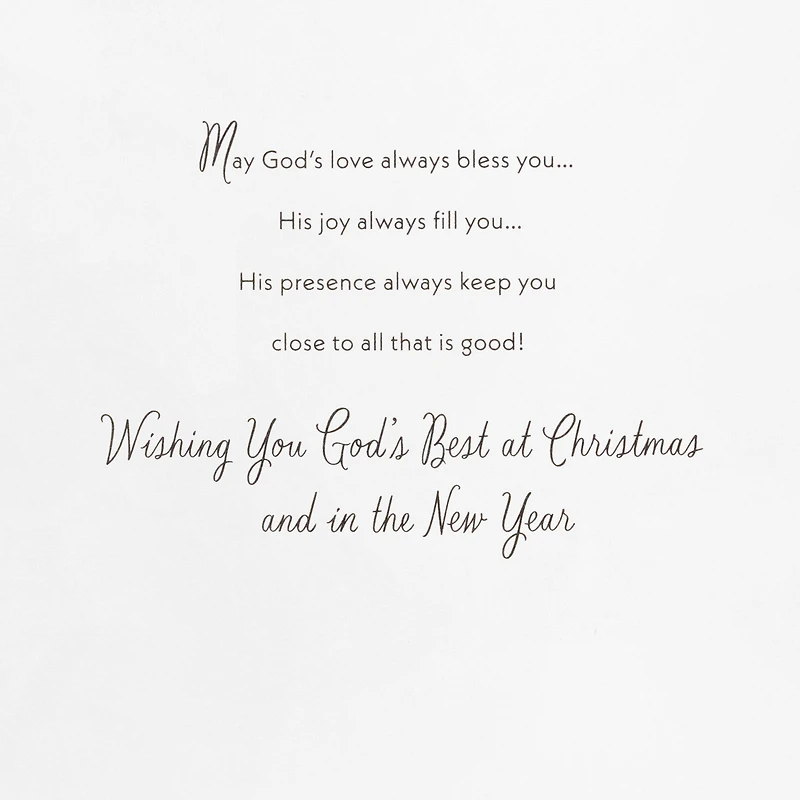 May God's love always bless you...
His joy always fill you...
His presence always keep you
close to all that is good!
Wishing You God's Best at Christmas
and in the New Year